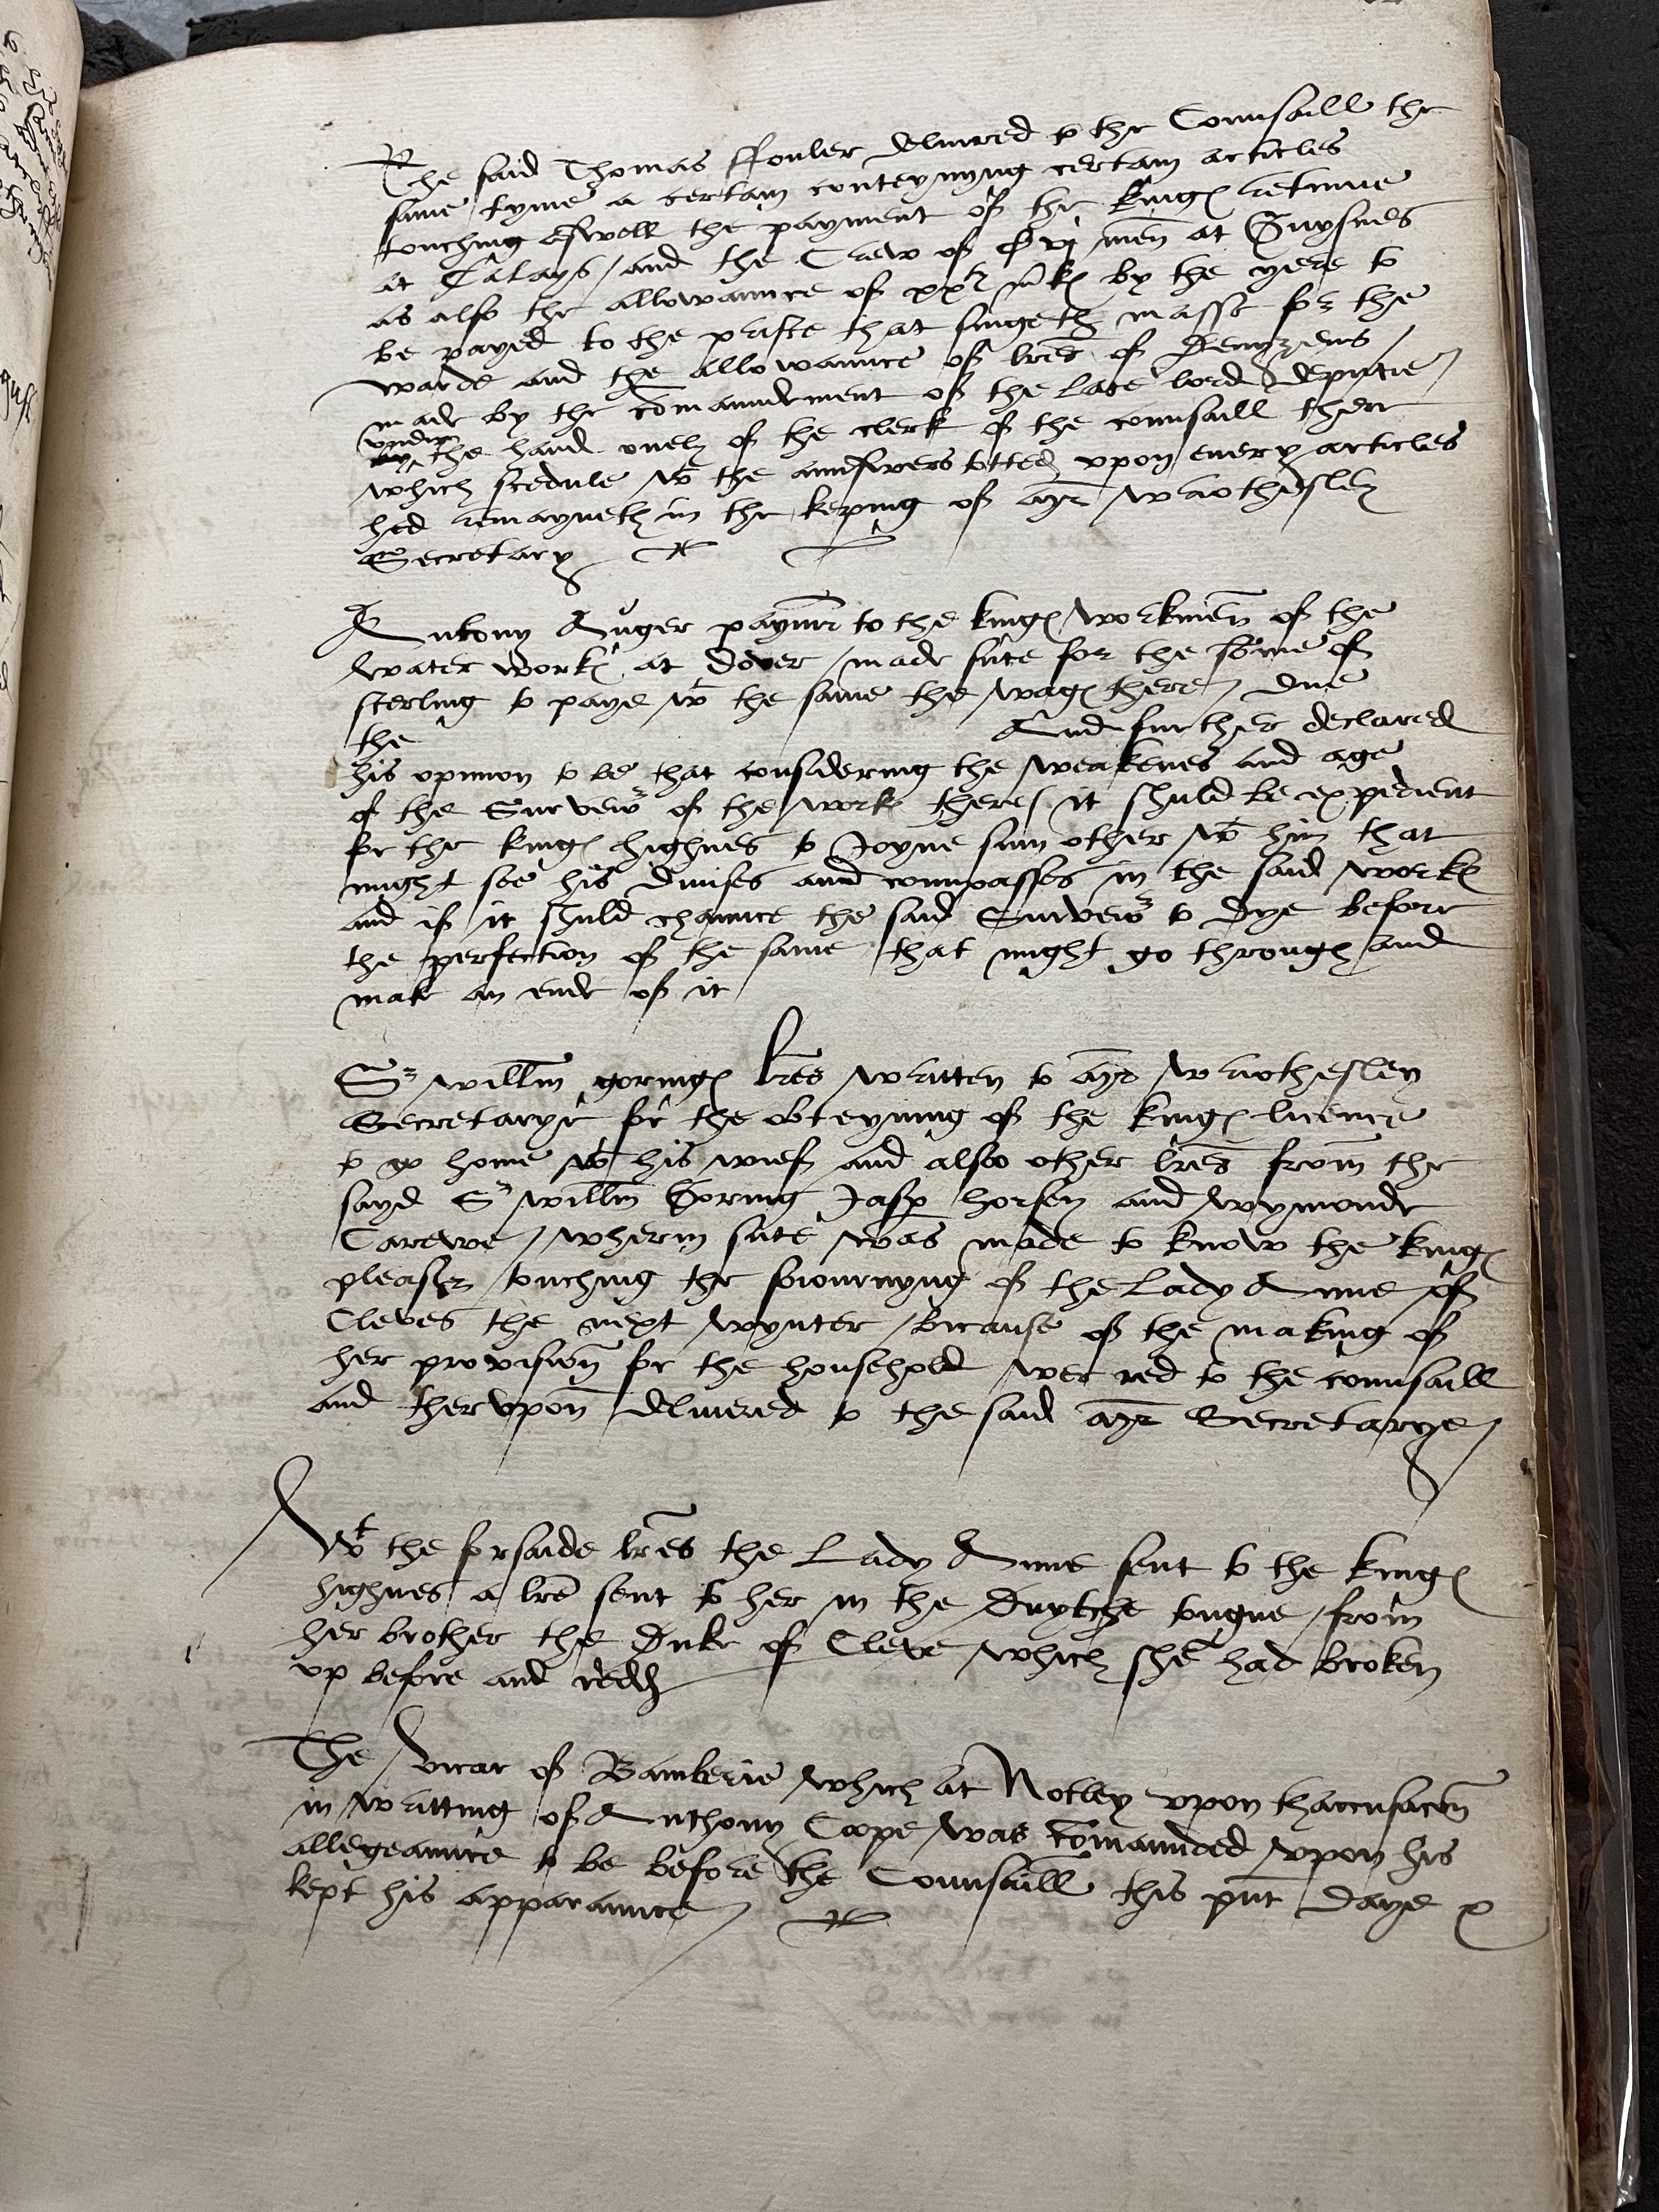 The said Thomas ffouler delivred to the Counsaill the
same tyme a certain conteynyng certain articles
touching aswell the payment of the kinges retinue
at Calays / and the Crew of men at Guysnes
as also the allowaunce of xxti mkes by the yere to
be payed to the preste that singeth masse for the
warde and the allowaunce of lres of Denyzens
made by the comaundement of the late lord deputie /
by undre the hand onely of the clerk of the counsaill there
which scedule wt the aunswers totted upon every articles
hed remayneth in the keping of Mr Wriothesley
Secretary
Antony Auger paymr to the kinges workmen of the
water workes at Dover / made sute for the some of
sterling to paye wt the same the wages there / due
the And further declared
his opinion to be that considering the weakenes and age
of the Surveior of the workes there / it shuld be expedient
for the kinges highnes to Joyne sum other wt him that
might see his divises and compasses in the said workes
and if it shuld chaunce the said Surveior to dye before
the perfection of the same that might go through and
make an ende of it /
Sr Willm gorings lres written to Mr Wriothesley
Secretarye for the obteyning of the kinges licence
to go home wt his wief and also other lres from the
sayd Sr Willm Goring Jasp horsey and Wymonde
Carewe / wherin sute was made to know the kinges
pleasr touching the soiournyng of the Lady Anne of
Cleves the next wynter / bicause of the making of
her provision for the household wer red to the counsaill
and therupon delivered to the said Mr Secretarye /
Wt the forsaide lres the Lady Anne sent to the kinges
highnes a lre sent to her in the Duytche tongue / from
her brother the Duke of Cleve which she had broken
up before and redde
The vicar of Bamberie which at Notley upon thaccusacon
in writting of Anthony Cope was comaunded upon his
allegeaunce to be before the Counsaill this pnt Daye
kept his apparaunce /